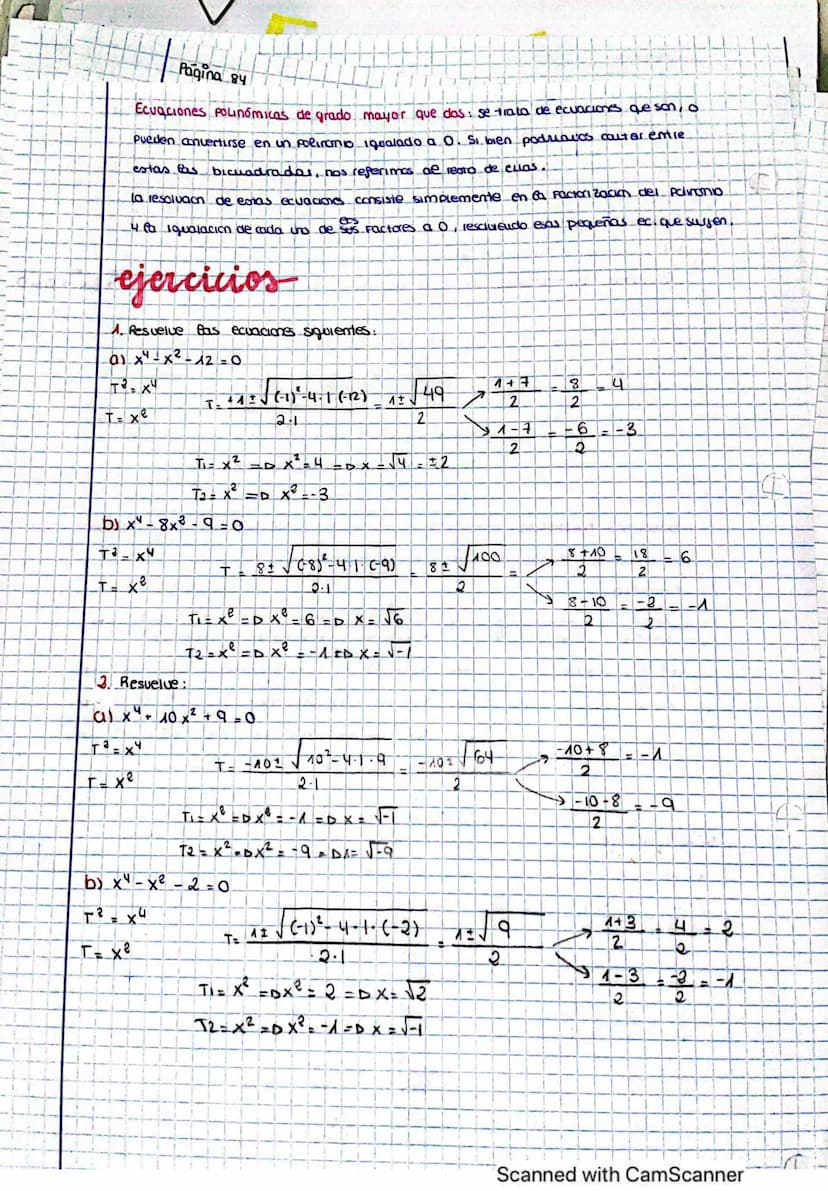 Página 84
Ecuaciones polinómicas de grado mayor que dos: se trata de ecuaciones que son, o
pueden convertirse en un polinomio igualado a 0. Si bien podríamos contar entre
estas las bicuadradas, nos referimos al resto de ellas.
La resolución de estas ecuaciones consiste simplemente en la factorización del polinomio
y la igualación de cada uno de sus factores a 0, resolviendo esas pequeñas ec. que surjen.
ejercicios
1. Resuelve las ecuaciones siguientes:
a) x⁴ - x² - 12 = 0
T² = x⁴
T = x²
T = +1 ± √(-1)² - 4·1 (-12) / 2·1 = 1 ± √49 / 2 → 1+7 / 2 = 8 / 2 = 4
→ 1-7 / 2 = -6 / 2 = -3
T1 = x² => x² = 4 => x = √4 = ±2
T2 = x² => x² = -3
b) x⁴ - 8x² - 9 = 0
T² = x⁴
T = x²
T = 8 ± √(-8)² - 4·1·(-9) / 2·1 = 8 ± √100 / 2 = → 8+10 / 2 = 18 / 2 = 6
→ 8-10 / 2 = -2 / 2 = -1
T1 = x² => x² = 6 => x = √6
T2 = x² => x² = -1 => x = √-1
2. Resuelve:
a) x⁴ + 10x² + 9 = 0
T² = x⁴
T = x²
T = -10 ± √10² - 4·1·9 / 2·1 = -10 ± √64 / 2 → -10+8 / 2 = -1
→ -10-8 / 2 = -9
T1 = x² => x² = -1 => x = √-1
T2 = x² => x² = -9 => 1 = √-9
b) x⁴ - x² - 2 = 0
T² = x⁴
T = x²
T = 1 ± √(-1)² - 4·1·(-2) / 2·1 = 1 ± √9 / 2 → 1+3 / 2 = 4 / 2 = 2
→ 1-3 / 2 = -2 / 2 = -1
T1 = x² => x² = 2 => x = √2
T2 = x² => x² = -1 => x = √-1
Scanned with CamScanner